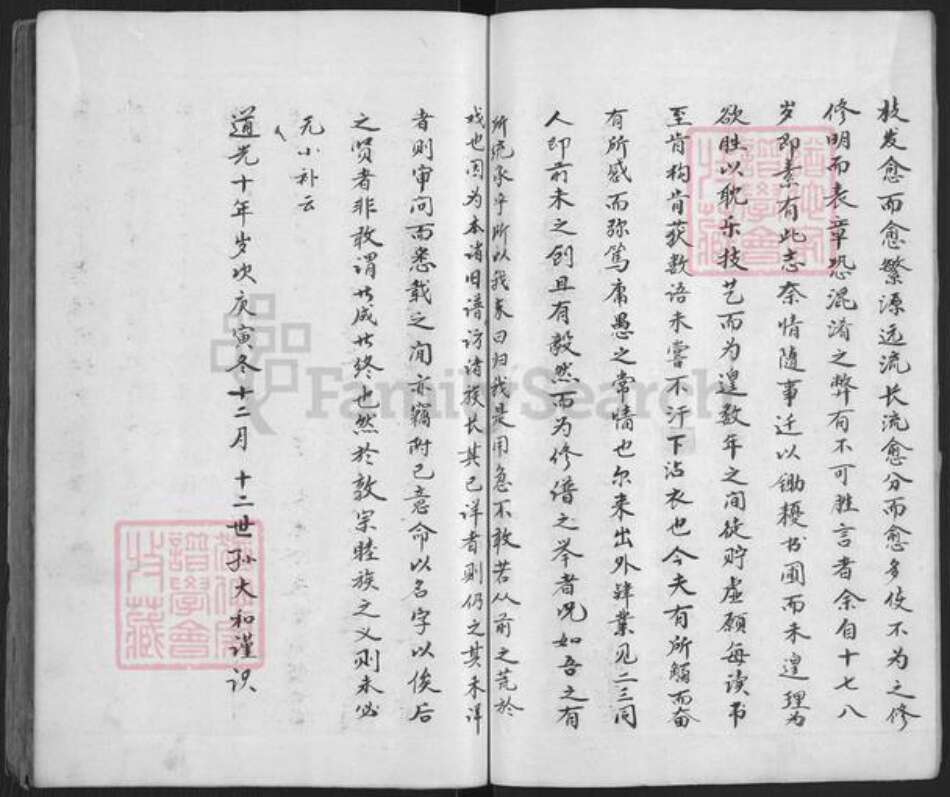 枝发愈而愈繁源远流长流愈分而愈多使不为之修
修明而表章恐混淆之弊有不可胜言者余自十七八
岁即素有此志奈情随事迁以锄耰书圃而未遑理为
欲胜以耽乐技艺而为遑数年之间徒贮虚愿每读书
至肯构肯获数语未尝不汗下沾衣也今夫有所触而奋
有所感而弥笃庸愚之常情也尔来出外肄业见二三同
人即前未之创且有毅然而为修谱之举者况如吾之有
所统承乎所以我来曰归我是用急不敢若从前之荒於
戏也因为本诸旧谱访诸族长其已详者则仍之其未详
者则审问而悉载之间亦窃附己意命以名字以俟后
之贤者非敢谓廿成廿终也然於敦宗睦族之义则未必
无小补云
道光十年岁次庚寅冬十二月 十二世孙大和谨识
譜學會
收藏
譜學會
收藏
FamilySearch